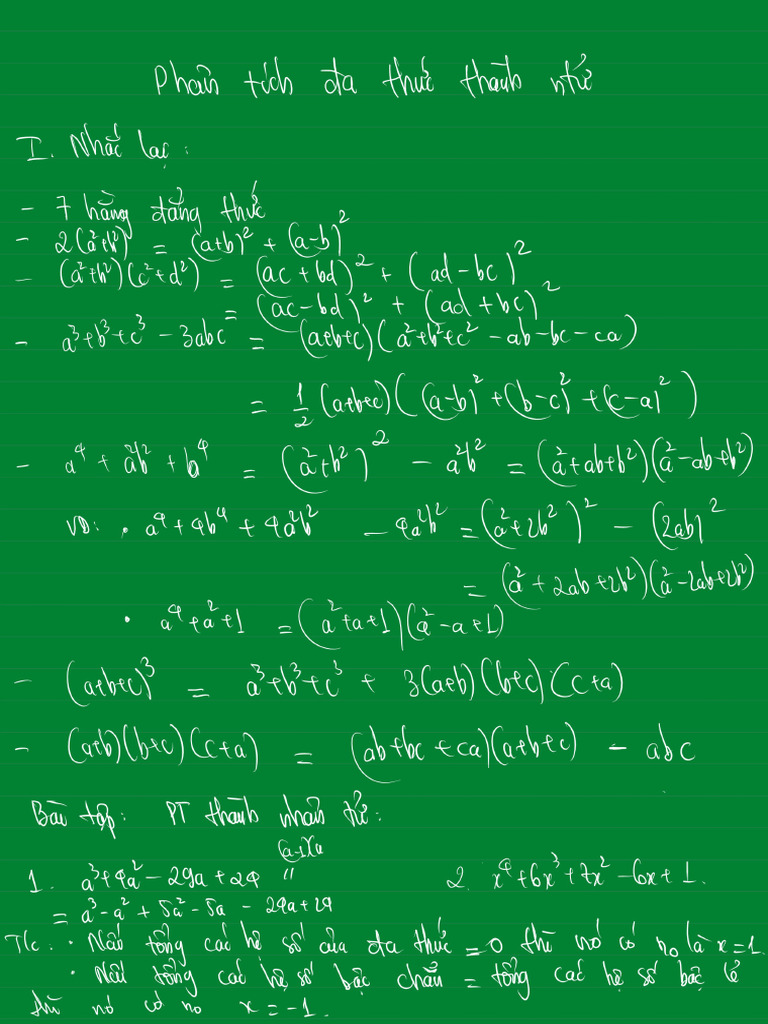 Phân tích đa thức thành ntử
I. Nhắc lại:
- 7 hằng đẳng thức
- 2(a²+b²) = (a+b)² + (a-b)²
- (a²+b²)(c²+d²) = (ac + bd)² + (ad - bc)²
= (ac - bd)² + (ad + bc)²
- a³+b³+c³ - 3abc = (a+b+c)(a²+b²+c² - ab - bc - ca)
= 1/2 (a+b+c)((a-b)² + (b-c)² + (c-a)²)
- a⁴ + a²b² + b⁴ = (a²+b²)² - a²b² = (a²+ab+b²)(a²-ab+b²)
VD: • a⁴ + 4b⁴ + 4a²b² - 4a²b² = (a²+2b²)² - (2ab)²
= (a² + 2ab + 2b²)(a² - 2ab + 2b²)
• a⁴ + a² + 1 = (a²+a+1)(a²-a+1)
- (a+b+c)³ = a³+b³+c³ + 3(a+b)(b+c)(c+a)
- (a+b)(b+c)(c+a) = (ab+bc+ca)(a+b+c) - abc
Bài tập: PT thành nhân tử:
(a-1)(a
1. a³+4a² - 29a + 24 "
2. x⁴+6x³+7x² - 6x + 1.
= a³ - a² + 5a² - 5a - 24a + 24
T/c: • Nếu tổng các hệ số của đa thức = 0 thì nó có no là x = 1.
• Nếu tổng các hệ số bậc chẵn = tổng các hệ số bậc lẻ
thì nó có no x = -1.